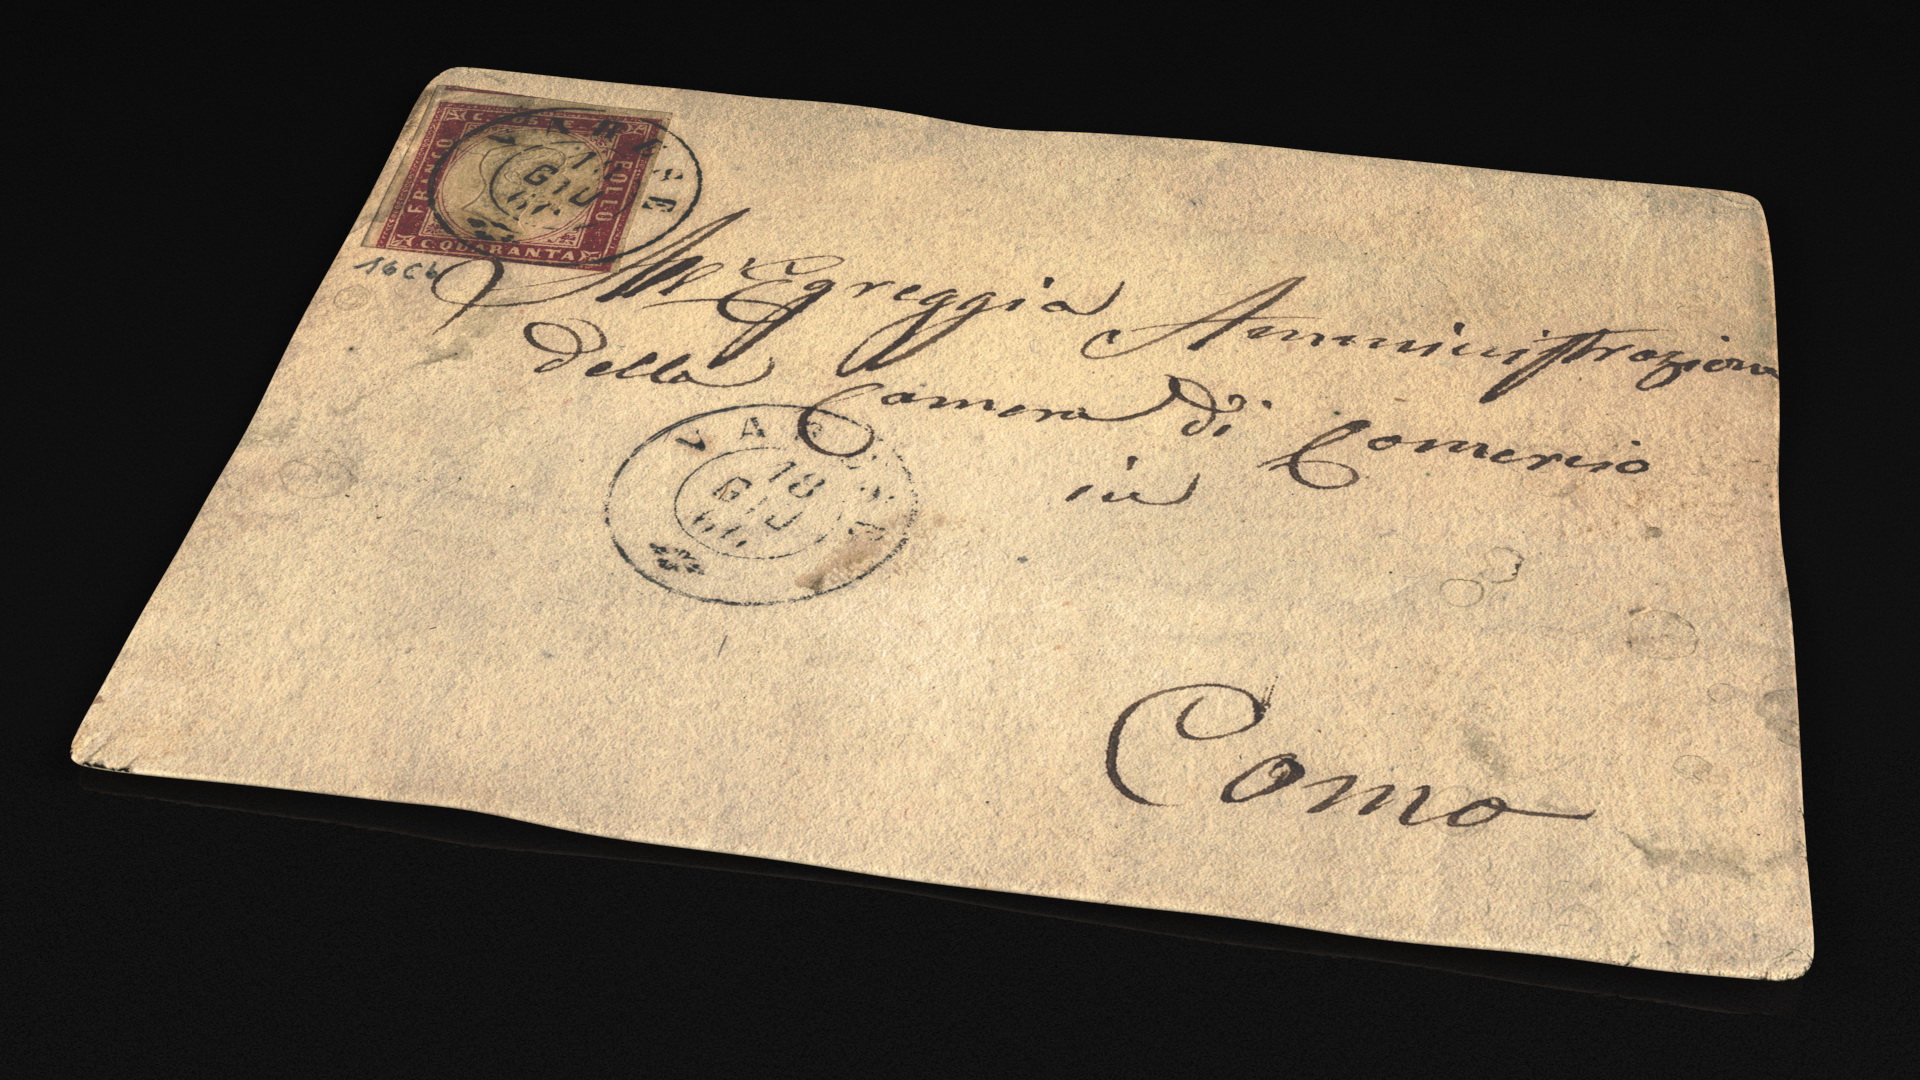 C. POSTE
FRANCO
BOLLO
C. QUARANTA
VARESE
18
GIU
61
16Cb
All'Egreggia Amministrazione
della Camera di Comercio
in
VARESE
18
GIU
Como